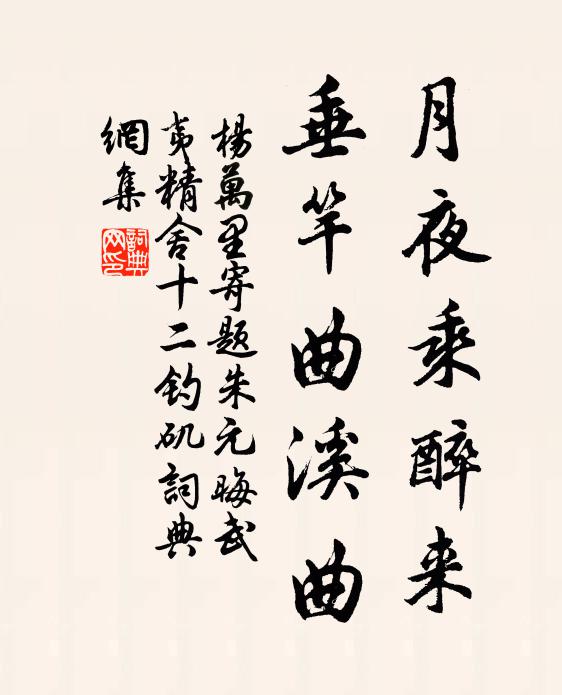 月夜乘醉来
垂竿曲溪曲
楊萬里寄题朱元晦武
夷精舍十二钓矶詞典
網集
詞典
网印